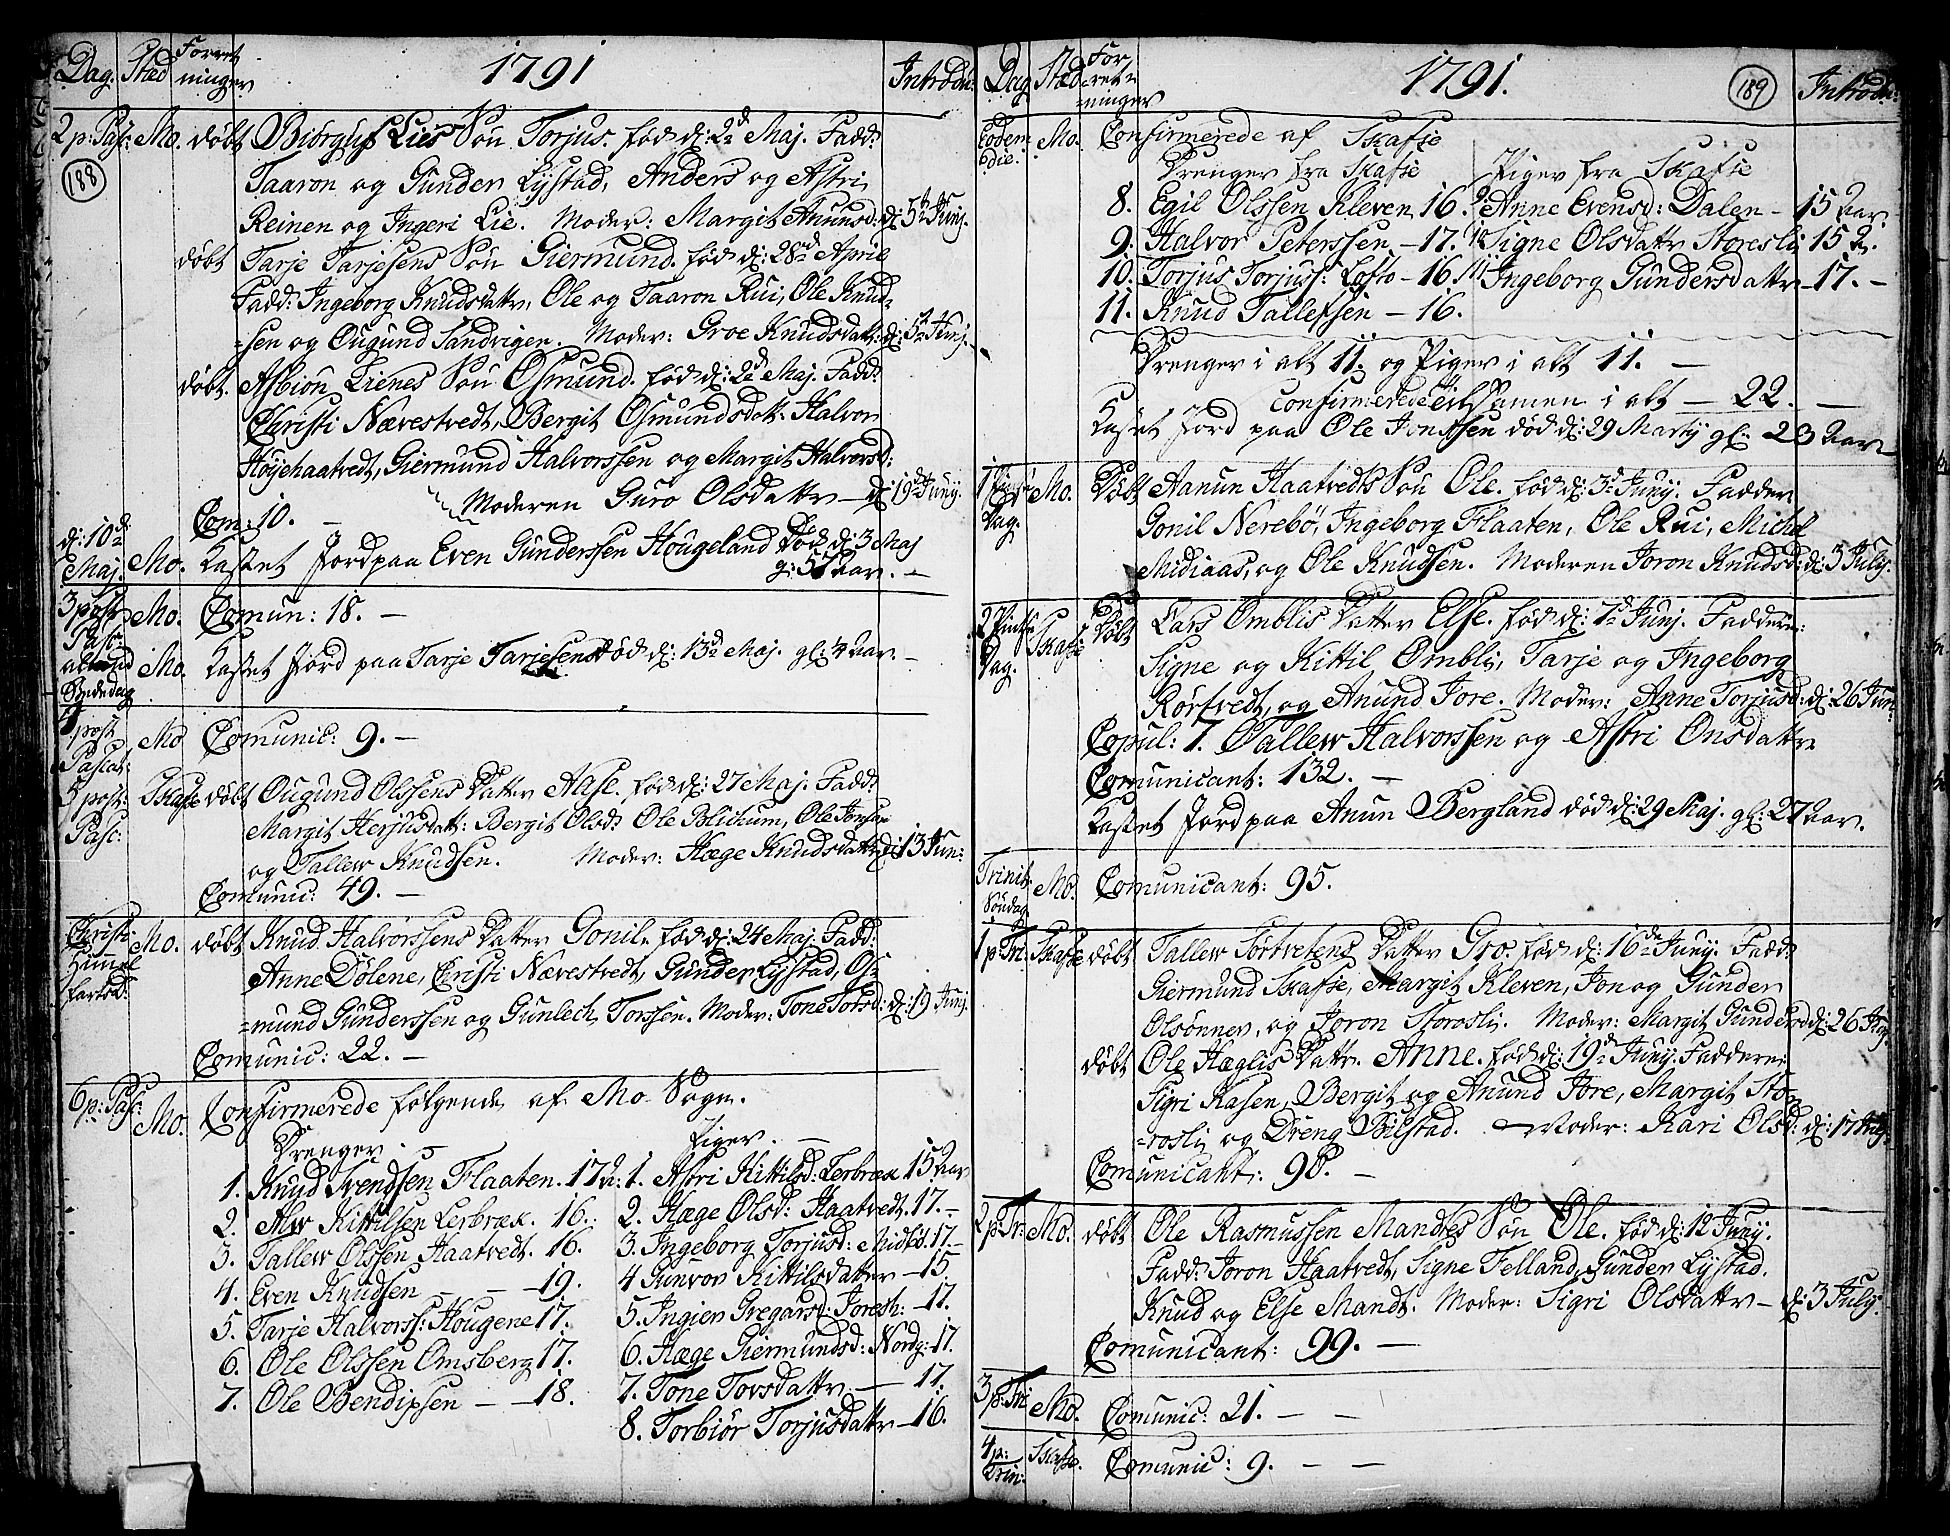 Dag. Sted Forret ninger 1791 Introdu:
188
2 p: Pasc: Mo. døbt Biørguf Lies Søn Torjus. fød d: 2d Maj. Fadd:
Taaron og Gunder Lystad, Anders og Astri
Reinen og Ingeri Lie. Moder: Margit Anunsd: d: 5te Junj.
døbt Tarje Tarjesens Søn Giermund. fød d: 28d April
Fadd: Ingeborg Knudsdattr, Ole og Taaron Rui, Ole Knud-
=sen og Ougund Sandvigen. Moder: Groe Knudsdattr: d: 5te Junj.
døbt. Asbiøn Lienes Søn Osmund. fød d: 2d Maj. Fadd:
Christi Nævestvedt, Bergit Osmundsdatt: Halvor
Høyehaatvedt, Giermund Halvorssen og Margit Halvorsd:
Moderen Guro Olsdattr — d: 19d Juny.
Com: 10. —
d: 10d Maj. Mo. Kastet Jord paa Even Gunderssen Hougeland død d: 3 Maj
g: 55 aar. —
3 post Pasc: Mo. Comun: 18. —
alm: Bededag Mo. Kastet Jord paa Tarje Tarjesen død d: 13d Maj. gl: 4 aar. —
4 post Pascat: Mo Comunic: 9. —
5 post: Pasc: Skafse døbt Ougund Olssens Datter Aase. fød d: 27 Maj. Fadd:
Margit Herjusdatt: Bergit Olsd: Ole Blickum, Ole Jonsen
og Tallew Knudsen. Moder: Hæge Knudsdattr d: 13 Jun:
Comunic: 49. —
Christi Himmel fartsd: Mo. døbt Knud Halvorssens Datter Gonil. fød d: 24 Maj. Fadd:
Anne Dølene, Christi Nævestvedt, Gunder Lystad, Os-
=mund Gunderssen og Gunlech Torssen. Moder: Tone Torsd: d: 19 Junj.
Comunic: 22. —
6 p: Pasc: Mo. Confirmerede følgende af Mo Sogn.
Drenger — Piger. —
1. Knud Svendsen Flaaten. 17 a: 1. Astri Kittilsd: Lerbræk 15 aar
2. Alw Kittilsen Lerbræk. 16. 2. Hæge Olsd: Haatvedt. 17. —
3. Tallew Olssen Haatvedt. 16. 3. Ingeborg Torjusd: Midbø. 17. —
4. Even Knudsen — — 19. 4 Gunvor Kittilsdatter — 15
5. Tarje Halvorss: Hougene 17. 5. Ingier Gregarsd: Joresh: — 17.
6. Ole Olssen Omsberg 17. 6. Hæge Giermundsd: Nordg: 17.
7. Ole Bendixsen — — 18. 7. Tone Torsdattr — 17.
8. Torbiør Torjusdattr — 16.
Dag Sted For ret= =ninger 1791. 189 Introdu:
Eodem die. Mo. Confirmerede af Skafse
Drenger fra Skafse Piger fra Skafse
8. Egil Olssen Kleven 16. 9. Anne Evensd: Dalen — 15 aar
9. Halvor Peterssen — 17. 10 Signe Olsdattr Storesli 15 a.
10. Torjus Torjuss: Lofto — 16. 11 Ingeborg Gundersdattr — 17. —
11. Knud Tallefsen — 16.
Drenger i alt 11. og Piger i alt 11. —
Confirmerede til Samen i alt — 22. —
Kastet Jord paa Ole Jonssen død d: 29 Martij gl: 23 aar
1 Pintse Dag. Mo. Døbt Aanun Haatvedts Søn Ole. fød d: 3d Junij. Fadder
Gonil Nerebø, Ingeborg Flaaten, Ole Rui, Michel
Midiaas, og Ole Knudsen. Moderen Joron Knudsd: d: 3 July.
2 Pintse Dag. Skafse Døbt Lars Omblis Datter Else. fød d: 7d Junj. Faddere:
Signe og Kittil Ombli, Tarje og Ingeborg
Rørtvedt, og Anund Jore. Moder: Anne Torjusd: d: 26 Jun:
Copul: 7. Tallew Halvorssen og Astri Onsdattr
Comunicant: 132. —
Kastet Jord paa Anun Bergland død d: 29 Maj. gl: 27 aar.
Trinit. Søndag Mo. Comunicant: 95.
1 p: Tri: Skafse døbt Tallew Tortvetens Datter Gro. fød d: 16de Junij. Fadd:
Giermund Skafse, Margit Kleven, Jon og Gunder
Olsønner, og Joron Storosli. Moder: Margit Gundersd d: 26 Junj
døbt Ole Hæglis Dattr. Anne. fød d: 19d Junij. Faddere:
Sigri Kasen, Bergit og Anund Jore, Margit Sto-
=rosli og Dreng Bilstad. — Moder: Kari Olsd: d: 17 July
Comunicant: 98. —
2 p: Tr: Mo. døbt Ole Rasmussen Mandtes Søn Ole. fød d: 12 Junij.
Fadd: Joron Haatvedt, Signe Felland, Gunder Lystad.
Knud og Else Mandt. Moder: Sigri Olsdattr — d: 3 July.
Comunicant: 99. —
3 p: Tri Mo. Comunic: 21. — —
4 p: Trin: Skafse. Comunic: 9. — —